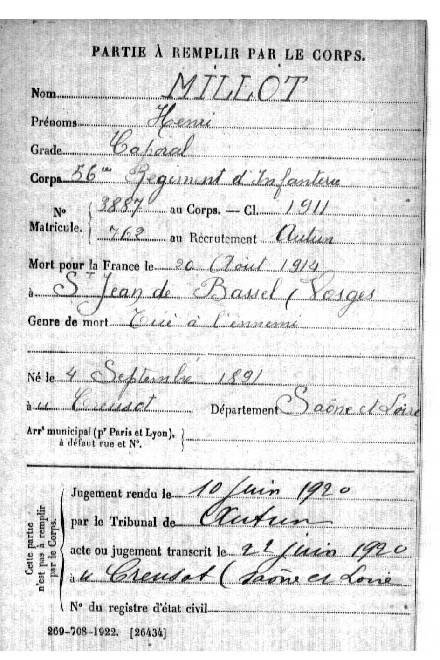 PARTIE À REMPLIR PAR LE CORPS.
Nom MILLOT
Prénoms Henri
Grade Caporal
Corps 56me Régiment d'Infanterie
N° Matricule. { 3887 au Corps. — Cl. 1911
762 au Recrutement Autun
Mort pour la France le 20 Août 1914
à St Jean de Bassel (Vosges
Genre de mort Tué à l'ennemi
Né le 4 Septembre 1891
à u Creusot Département Saône et Loire
Arrt municipal (pr Paris et Lyon),
à défaut rue et N°.
Cette partie n'est pas à remplir par le Corps.
Jugement rendu le 10 Juin 1920
par le Tribunal de Autun
acte ou jugement transcrit le 22 juin 1920
à u Creusot (Saône et Loire
N° du registre d'état civil
269-708-1922. [26434]